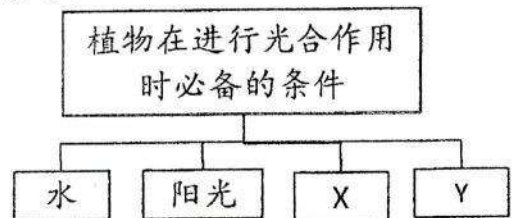 植物在进行光合作用
时必备的条件
水 阳光 X Y